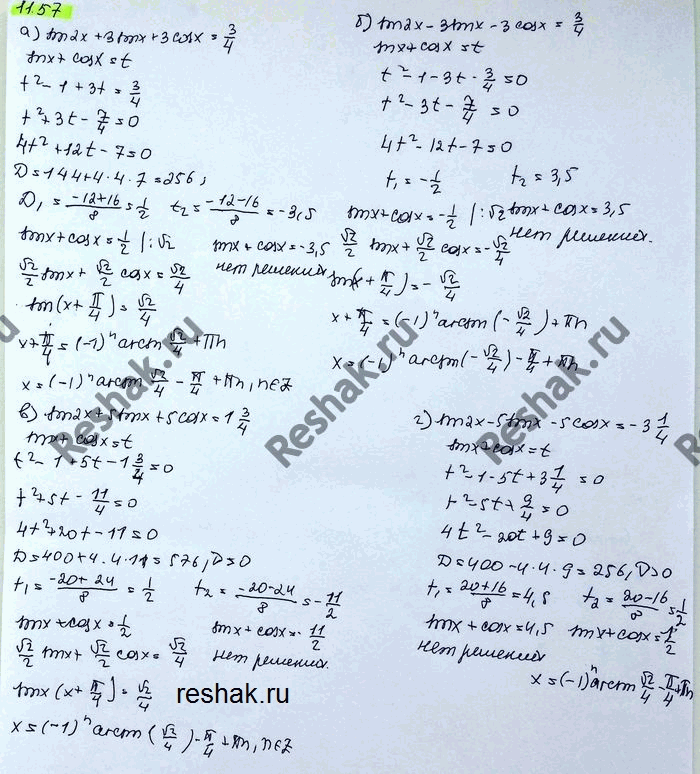 11.57
а) sin2x+3sinx+3cosx=3/4
sinx+cosx=t
t²-1+3t=3/4
t²+3t-7/4=0
4t²+12t-7=0
D=144+4·4·7=256;
D₁=(-12+16)/8=1/2 t₂=(-12-16)/8=-3,5
sinx+cosx=1/2 |:√2 sinx+cosx=-3,5
нет решений
√2/2 sinx+√2/2 cosx=√2/4
sin(x+π/4)=√2/4
x+π/4=(-1)ⁿarcsin √2/4+πn
x=(-1)ⁿarcsin √2/4-π/4+πn, n∈Z
б) sin2x-3sinx-3cosx=3/4
sinx+cosx=t
t²-1-3t-3/4=0
t²-3t-7/4=0
4t²-12t-7=0
t₁=-1/2 t₂=3,5
sinx+cosx=-1/2 |:√2 sinx+cosx=3,5
нет решений.
√2/2 sinx+√2/2 cosx=-√2/4
sin(x+π/4)=-√2/4
x+π/4=(-1)ⁿarcsin(-√2/4)+πn
x=(-1)ⁿarcsin(-√2/4)-π/4+πn
в) sin2x+5sinx+5cosx=1 3/4
sinx+cosx=t
t²-1+5t-1 3/4=0
t²+5t-11/4=0
4t²+20t-11=0
D=400+4·4·11=576, D>0
t₁=(-20+24)/8=1/2 t₂=(-20-24)/8=-11/2
sinx+cosx=1/2 sinx+cosx=-11/2
√2/2 sinx+√2/2 cosx=√2/4 нет решений.
sinx(x+π/4)=√2/4
x=(-1)ⁿarcsin(√2/4)-π/4+πn, n∈Z
г) sin2x-5sinx-5cosx=-3 1/4
sinx+cosx=t
t²-1-5t+3 1/4=0
t²-5t+9/4=0
4t²-20t+9=0
D=400-4·4·9=256, D>0
t₁=(20+16)/8=4,5 t₂=(20-16)/8=1/2
sinx+cosx=4,5 sinx+cosx=1/2
нет решений
x=(-1)ⁿarcsin √2/4-π/4+πn
reshak.ru
Reshak.ru
Reshak.ru
Reshak.ru
Reshak.ru